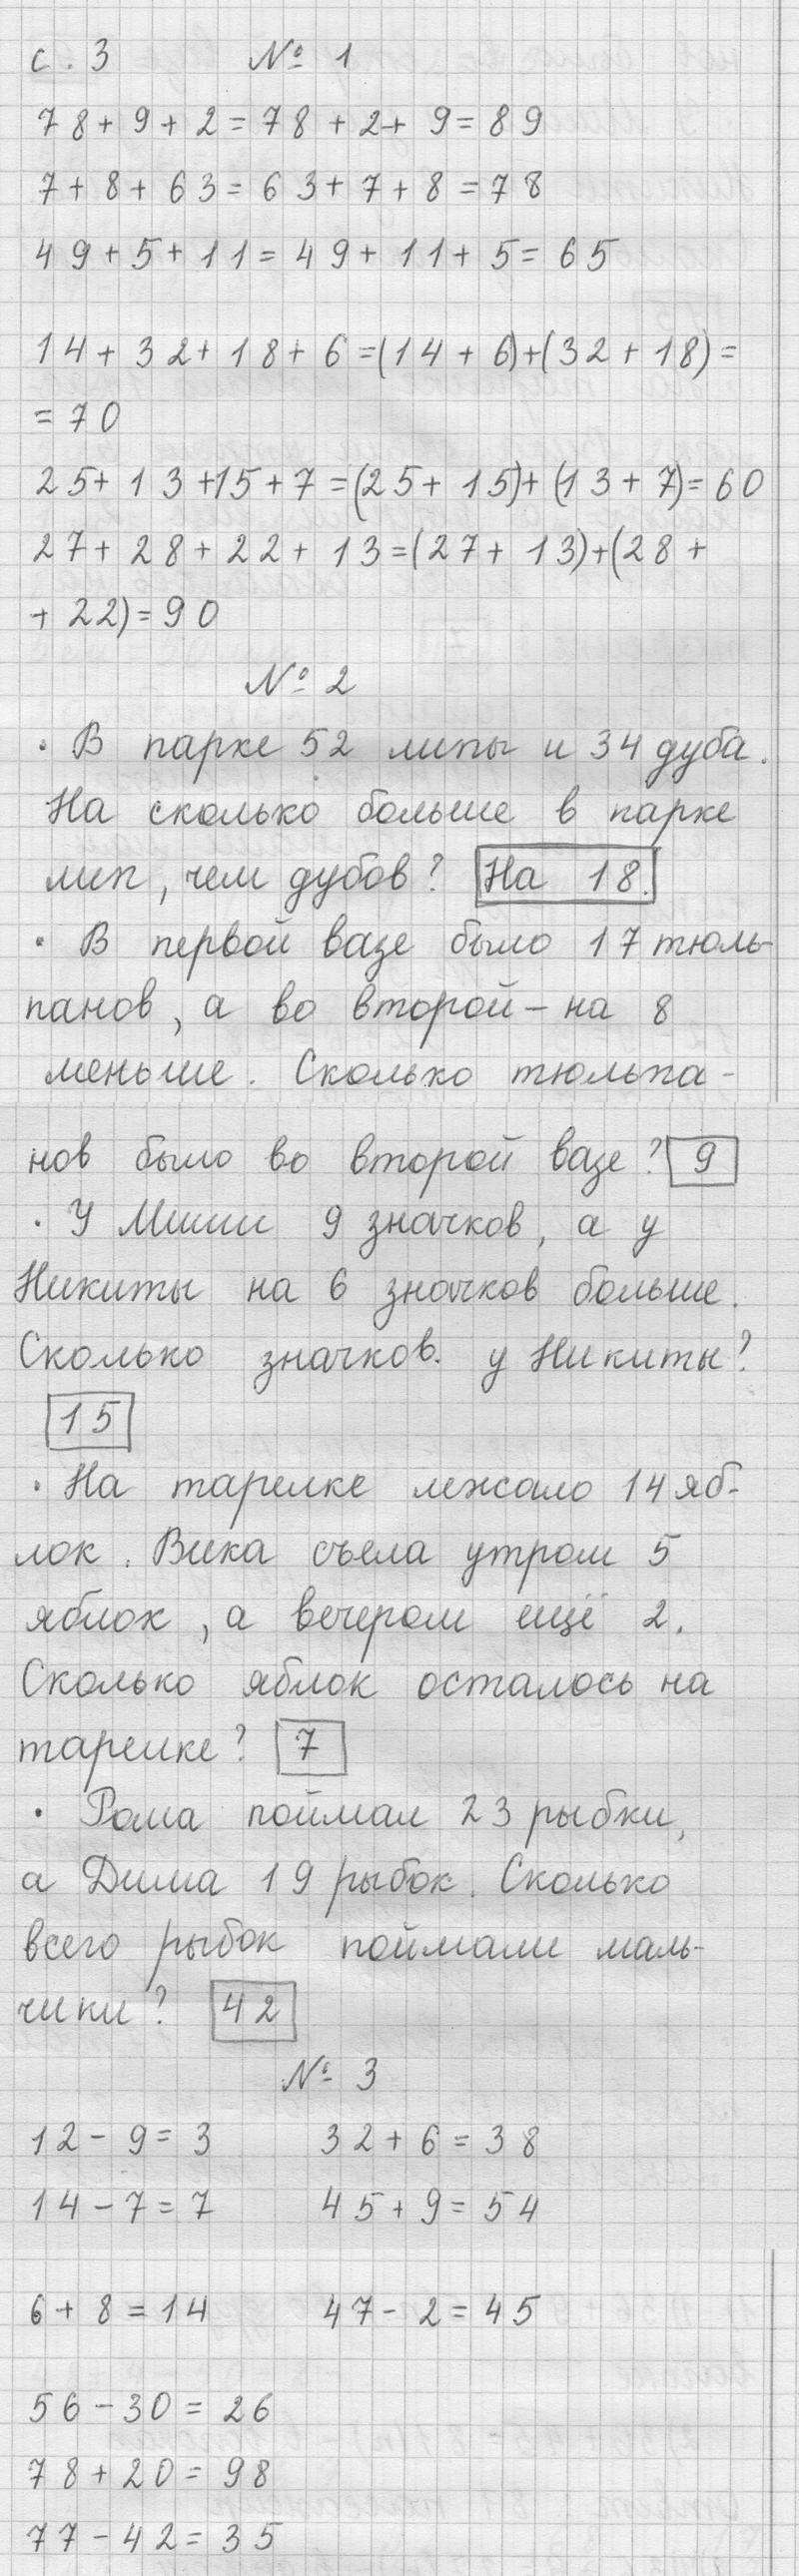 с. 3 № 1
78+9+2=78+2+9=89
7+8+63=63+7+8=78
49+5+11=49+11+5=65
14+32+18+6=(14+6)+(32+18)=
=70
25+13+15+7=(25+15)+(13+7)=60
27+28+22+13=(27+13)+(28+
+22)=90
№ 2
· В парке 52 липы и 34 дуба.
На сколько больше в парке
лип, чем дубов? На 18.
· В первой вазе было 17 тюль-
панов, а во второй - на 8
меньше. Сколько тюльпа-
нов было во второй вазе? 9
· У Миши 9 значков, а у
Никиты на 6 значков больше.
Сколько значков. у Никиты?
15
· На тарелке лежало 14 яб-
лок. Вика съела утром 5
яблок, а вечером ещё 2.
Сколько яблок осталось на
тарелке? 7
· Рома поймал 23 рыбки,
а Дима 19 рыбок. Сколько
всего рыбок поймали маль-
чики? 42
№ 3
12-9=3 32+6=38
14-7=7 45+9=54
6+8=14 47-2=45
56-30=26
78+20=98
77-42=35